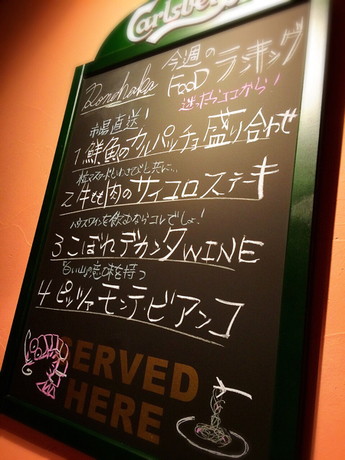 Carlsberg
今週の
FooD ランキング
迷ったらココから!
市場直送!
1.鮮魚のカルパッチョ盛り合わせ
粒マスタードとわさびと共に...
2.牛もも肉のサイコロステーキ
ハウスワインを飲むならコレでしょ!
3.こぼれデカンタWINE
白い山の意味を持つ
4.ピッツァモンテ・ビアンコ
SERVED
HERE